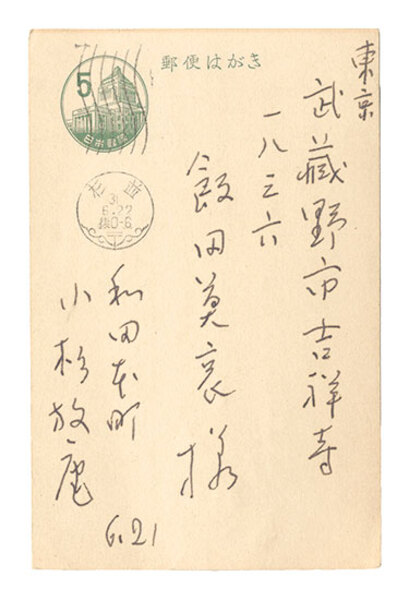 郵便はがき
5
日本郵便
6.22
後0-6
東京
武蔵野市吉祥寺
一八三六
飯田莫哀様
和田本町
小杉放庵
6.21